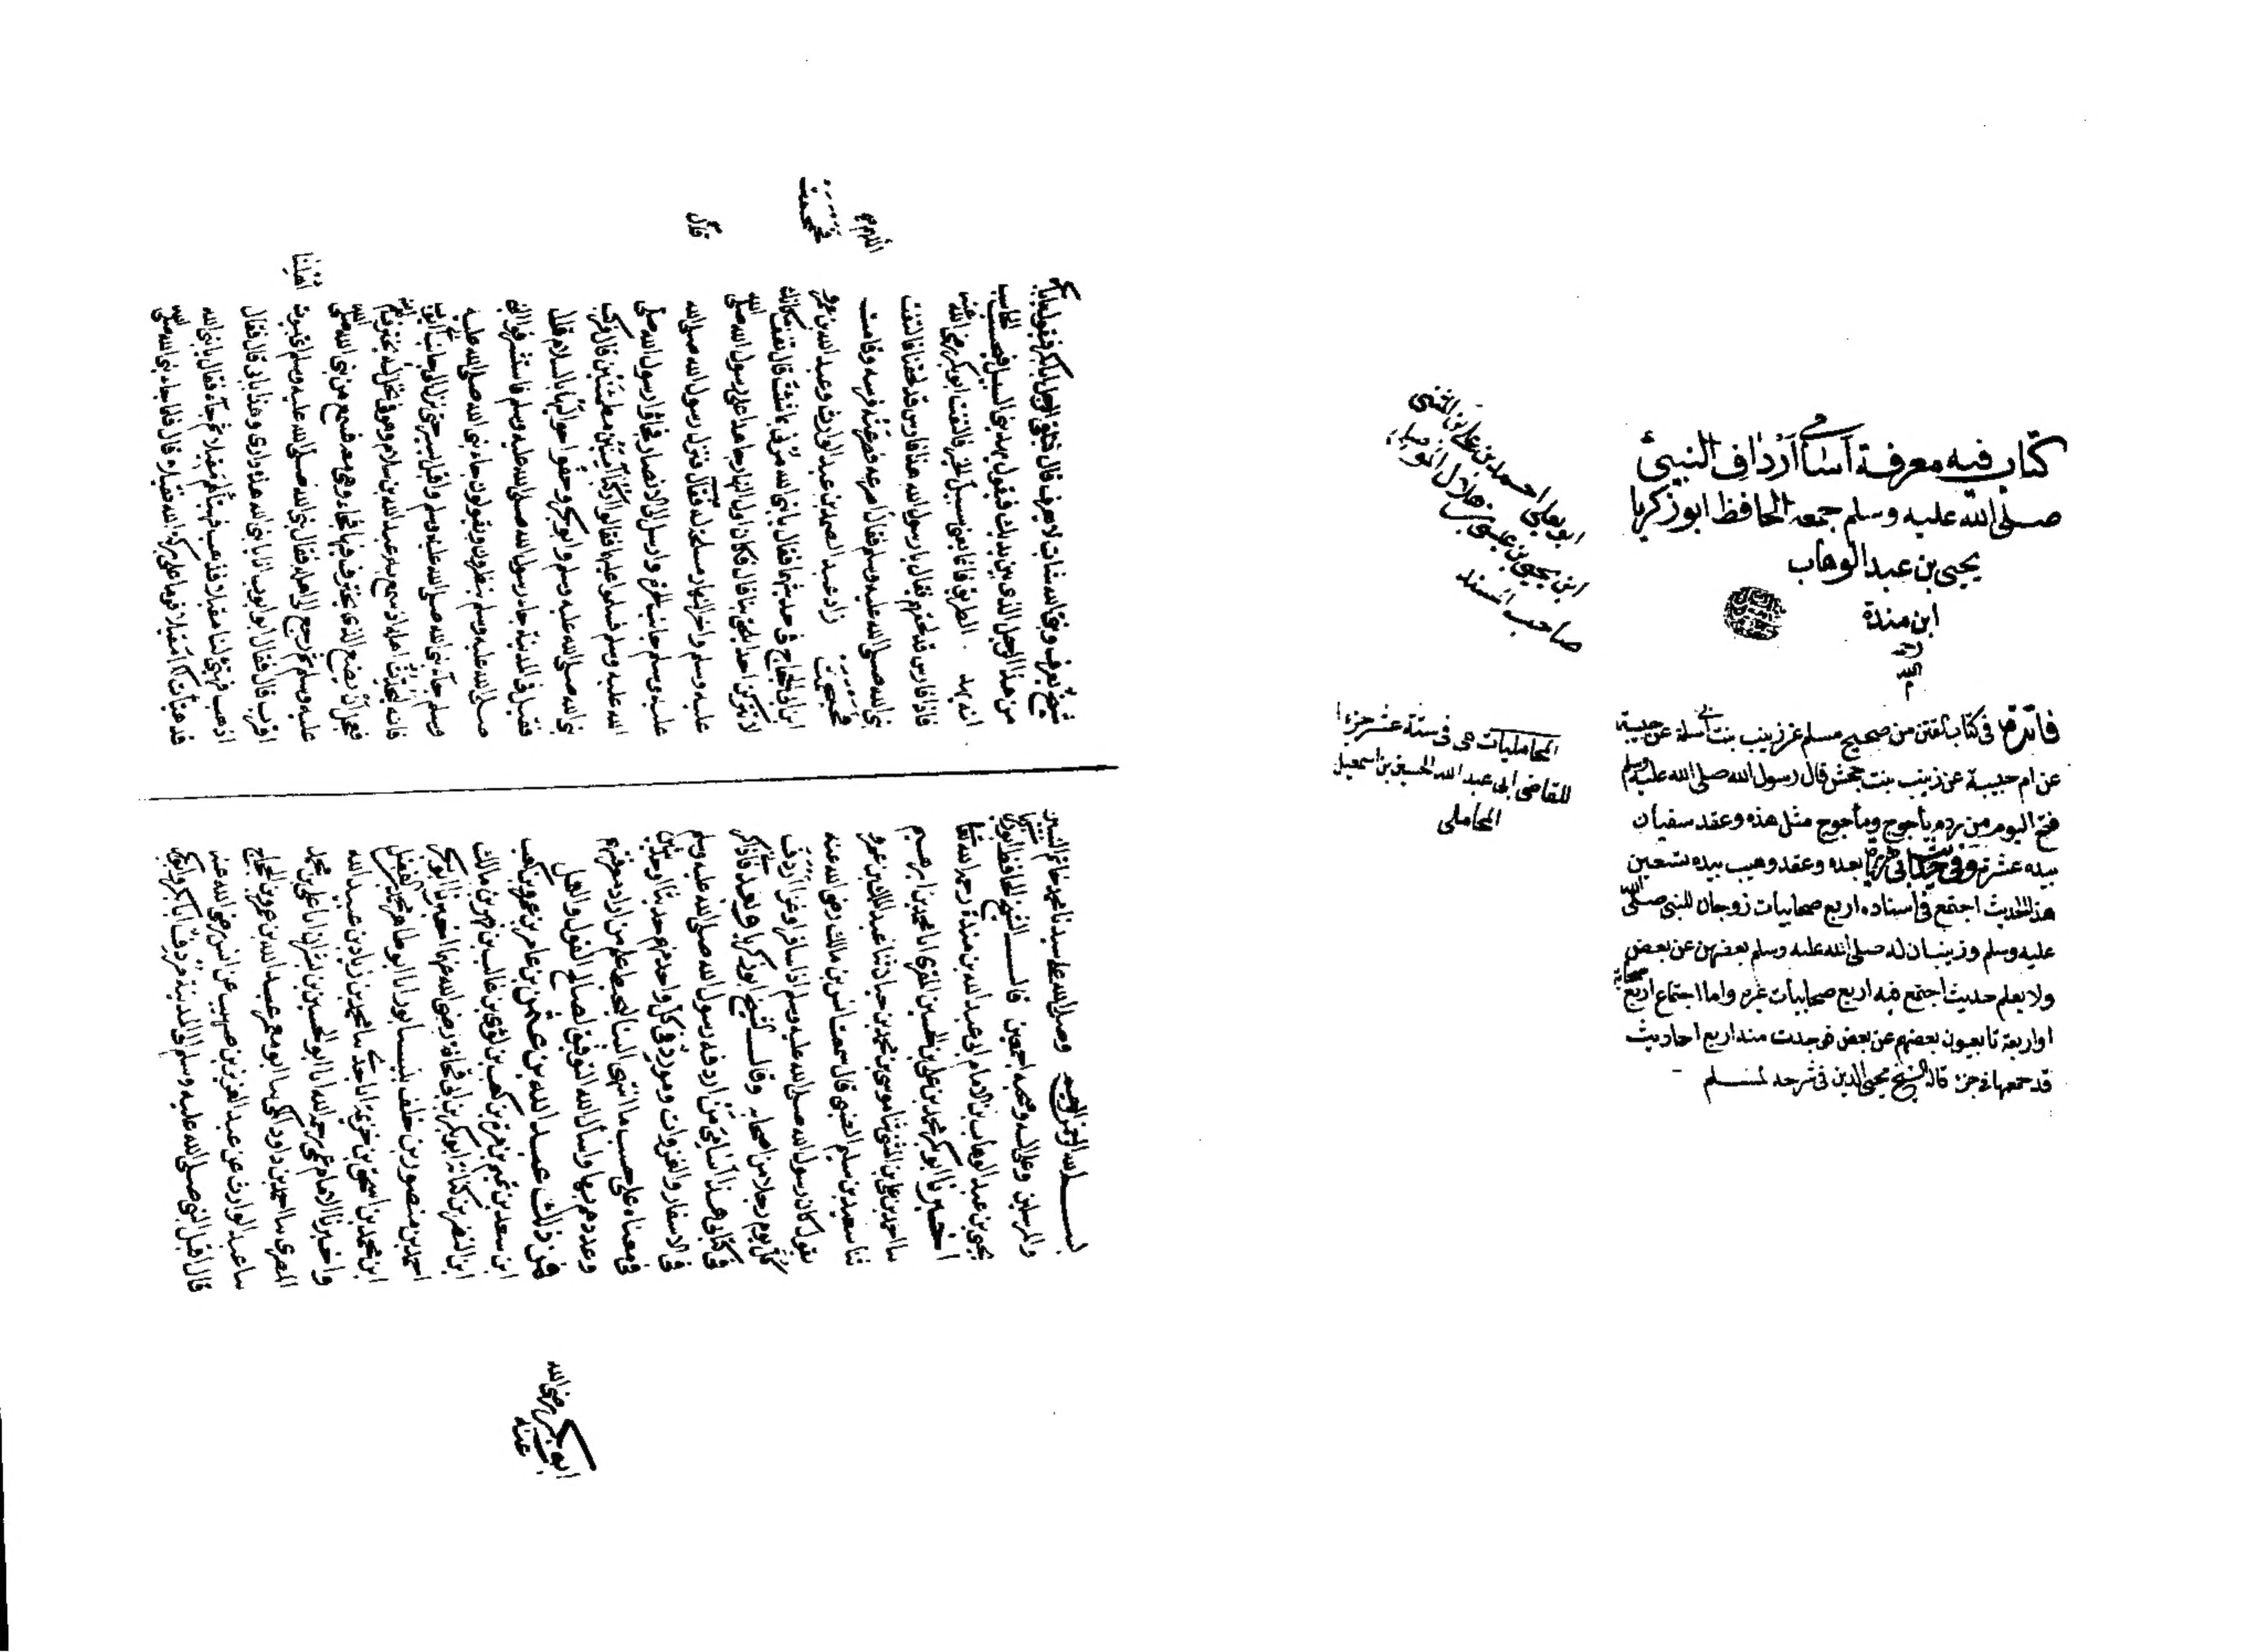 كتاب فيه معرفة أسامي أرداف النبي
صلى الله عليه وسلم جمعه الحافظ ابو زكريا
يحيى بن عبد الوهاب
ابن مندة
فائدة في كتاب الفتن من صحيح مسلم عن زينب بنت ام سلمة عن حبيبة
عن ام حبيبة عن زينب بنت جحش قال رسول الله صلى الله عليه وسلم
فتح اليوم من ردم يأجوج ومأجوج مثل هذه وعقد سفيان
بيده عشرة بعده وعقد وهيب بيده تسعين
هذا الحديث اجتمع في اسناده اربع صحابيات زوجان للنبي صلى الله
عليه وسلم وربيبتان له صلى الله عليه وسلم بعضهن عن بعض
ولا يعلم حديث اجتمع فيه اربع صحابيات غيره واما اجتماع اربع صحابة
او اربعة تابعيون بعضهم عن بعض فوجدت منه اربع احاديث
قد جمعها في جزء قاله الشيخ محيي الدين في شرحه لمسلم
ابو يعلى احمد بن علي بن المثنى
ابن يحيى بن عيسى بن هلال الموصلي
صاحب المسند
المحامليات هي في ستة عشر جزءا
للقاضي ابي عبد الله الحسين بن اسمعيل
المحاملي
بسم الله الرحمن الرحيم وصلى الله على سيدنا محمد خاتم النبيين
والمرسلين وعلى اله وصحبه اجمعين قال الشيخ الحافظ ابو زكريا
يحيى بن عبد الوهاب بن الامام ابي عبد الله بن مندة رحمه الله تعالى
اخبرنا ابو بكر محمد بن علي بن الحسين المقرئ انا محمد بن ابرهيم
سا احمد بن علي بن المثنى ثنا موسى بن محمد بن حيان ثنا عبد الملك بن عمرو
ثنا سعيد بن سليم الضبي قال سمعت انس بن مالك رضي الله عنه
يقول كان رسول الله صلى الله عليه وسلم اذا سافر او غزا اردف
كل يوم رجلا من اصحابه وقال الشيخ ابو زكريا وبعد فاذكر
في كتابي هذا اسامي من اردفه رسول الله صلى الله عليه وسلم
في الاسفار والغزوات ومورد في كل واحد منهم حديثا او حديثين
في معناه على حسب ما انتهى الينا ليحيط علم من اراد معرفتهم
وعددهم بها واسأل الله التوفيق لصالح القول والعمل
فمن ذلك عبد الله بن عثمن بن عامر بن عمرو بن كعب
ابن سعد بن تيم بن مرة بن كعب بن لؤي بن غالب بن فهر بن مالك
ابن النضر بن كنانة ابو بكر بن ابي قحافة رضي الله عنهما اخبرنا ابو بكر
احمد بن منصور بن خلف بنيسابور انا ابو طاهر محمد بن الفضل
ابن محمد بن اسحق بن خزيمة انا جدي سا محمد بن زياد بن عبيد الله
واخبرنا الامام عمي رحمه الله انا ابو الحسين بن بشران انا علي بن محمد
المصري سا احمد بن داود المكي سا ابو معمر عبد الله بن عمرو بن الحجاج
سا عبد الوارث عن عبد العزيز بن صهيب عن انس رضي الله عنه
قال اقبل النبي صلى الله عليه وسلم الى المدينة مردف ابا بكر وابو بكر
ابو بكر رضي الله
عنه
شيخ يعرف ونبي الله شاب لا يعرف قال فيلقى الرجل ابا بكر فيقول يا ابا بكر
من هذا الرجل الذي بين يديك فيقول يهديني السبيل فيحسب الحاسب
انه يهديه الطريق فانما يعني سبيل الخير فالتفت ابو بكر رضي الله عنه
فاذا فارس قد لحقهم فقال يا رسول الله هذا فارس قد لحقنا فالتفت
نبي الله صلى الله عليه وسلم فقال اللهم اصرعه فصرعته فرسه وقامت
تحمحم زاد عبد الصمد بن عبد الوارث وعبد الله بن عمرو
ابن ابي الحجاج في حديثهما فقال يا نبي الله مرني بما شئت قال تقف مكانك
لا تتركن احدا يلحق بنا قال فكان اول النهار جاهدا على رسول الله صلى الله
عليه وسلم واخر النهار مسلحة له فقال فنزل رسول الله صلى الله
عليه وسلم جانب الحرة وارسل الى الانصار فجاؤا رسول الله صلى
الله عليه وسلم فسلموا عليهما فقالوا اركبا آمنين مطمئنين قال فركب
نبي الله صلى الله عليه وسلم وابو بكر وحفوا حولهما بالسلاح فقيل
فقيل في المدينة جاء رسول الله صلى الله عليه وسلم فاستشرفوا نبي الله
صلى الله عليه وسلم ينظرون ويقولون جاء نبي الله صلى الله عليه
وسلم جاء نبي الله صلى الله عليه وسلم واقبل يسير حتى نزل الى جانب دار ابي ايوب
فانه ليحدث اهله اذ سمع به عبد الله بن سلام وهو في نخل له يخترف لهم
فعجل ان يضع الذي يخترف فيها فجاء وهي معه فسمع من نبي الله صلى الله
عليه وسلم ثم رجع الى اهله فقال نبي الله صلى الله عليه وسلم اي بيوت اهلنا
اقرب قال فقال ابو ايوب انا يا نبي الله هذه داري وهذا بابي قال فقال
اذهب فهيئ لنا مقيلا فذهب فهيأ لهم مقيلا ثم جاء فقال يا نبي الله
قد هيأت لكما مقيلا قوما على بركة الله فقيلا قال فلما جاء نبي الله صلى الله